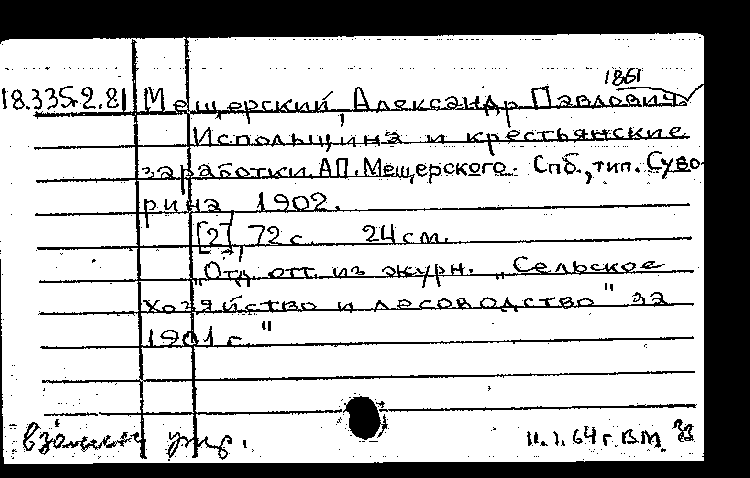 1861
18.335.2.81 Мещерский, Александр Павлович
Испольщина и крестьянские
заработки. А.П. Мещерского. Спб., тип. Суво-
рина, 1902.
[2], 72 с. 24 см.
"Отд. отт. из журн. "Сельское
хозяйство и лесоводство" за
1901 г."
взамен утр. 11.I.64 г. В.М.